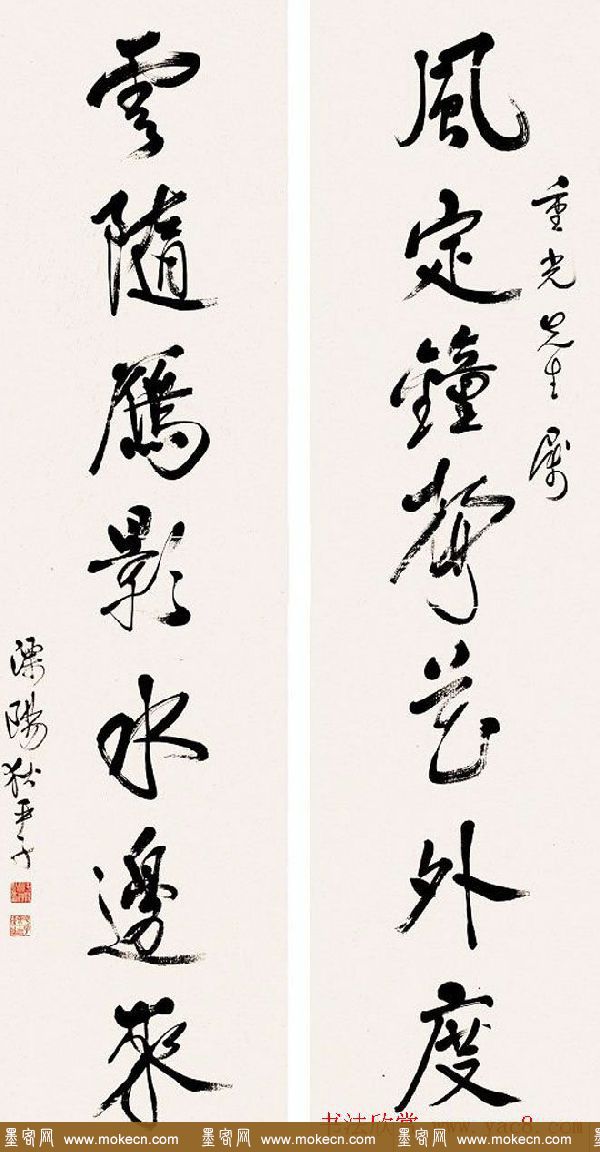 重光先生属
風定鐘聲花外度
雲隨鴈影水邊來
溧陽狄平子
书法欣赏 www.yac8.com
墨客网 www.mokecn.com 墨客网 www.mokecn.com 墨客网 www.mokecn.com